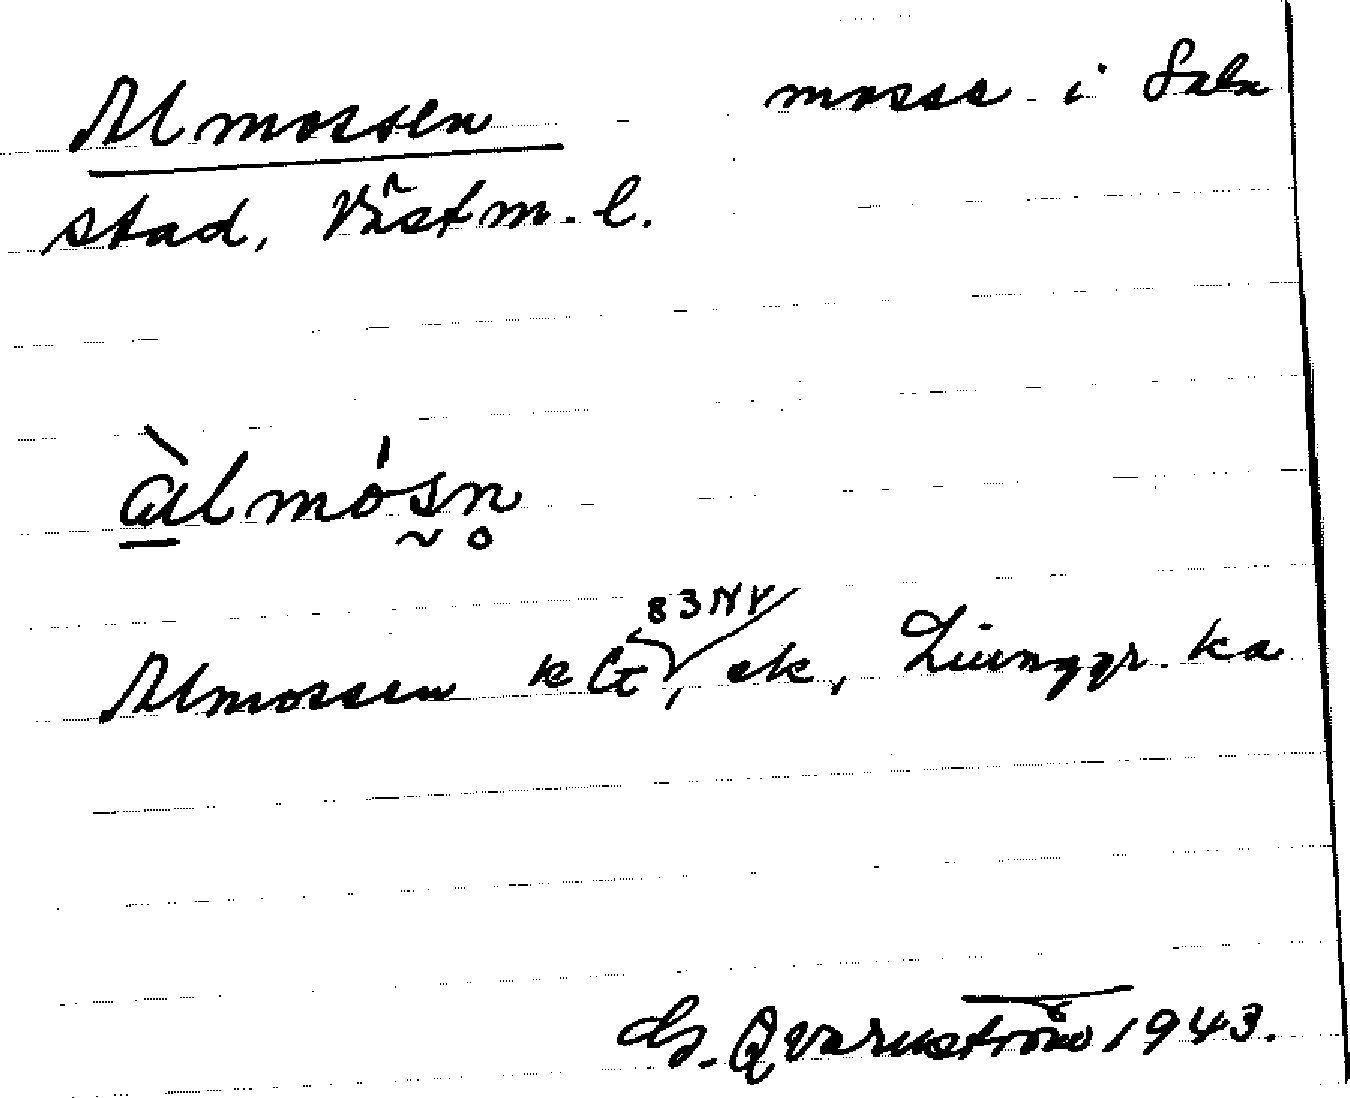 Almossen mosse i Sala
stad, Västm. l.
àlmósn̥
83 NV
Almossen k G, ek, Ljunggr. ka
G. Qvarnström 1943.